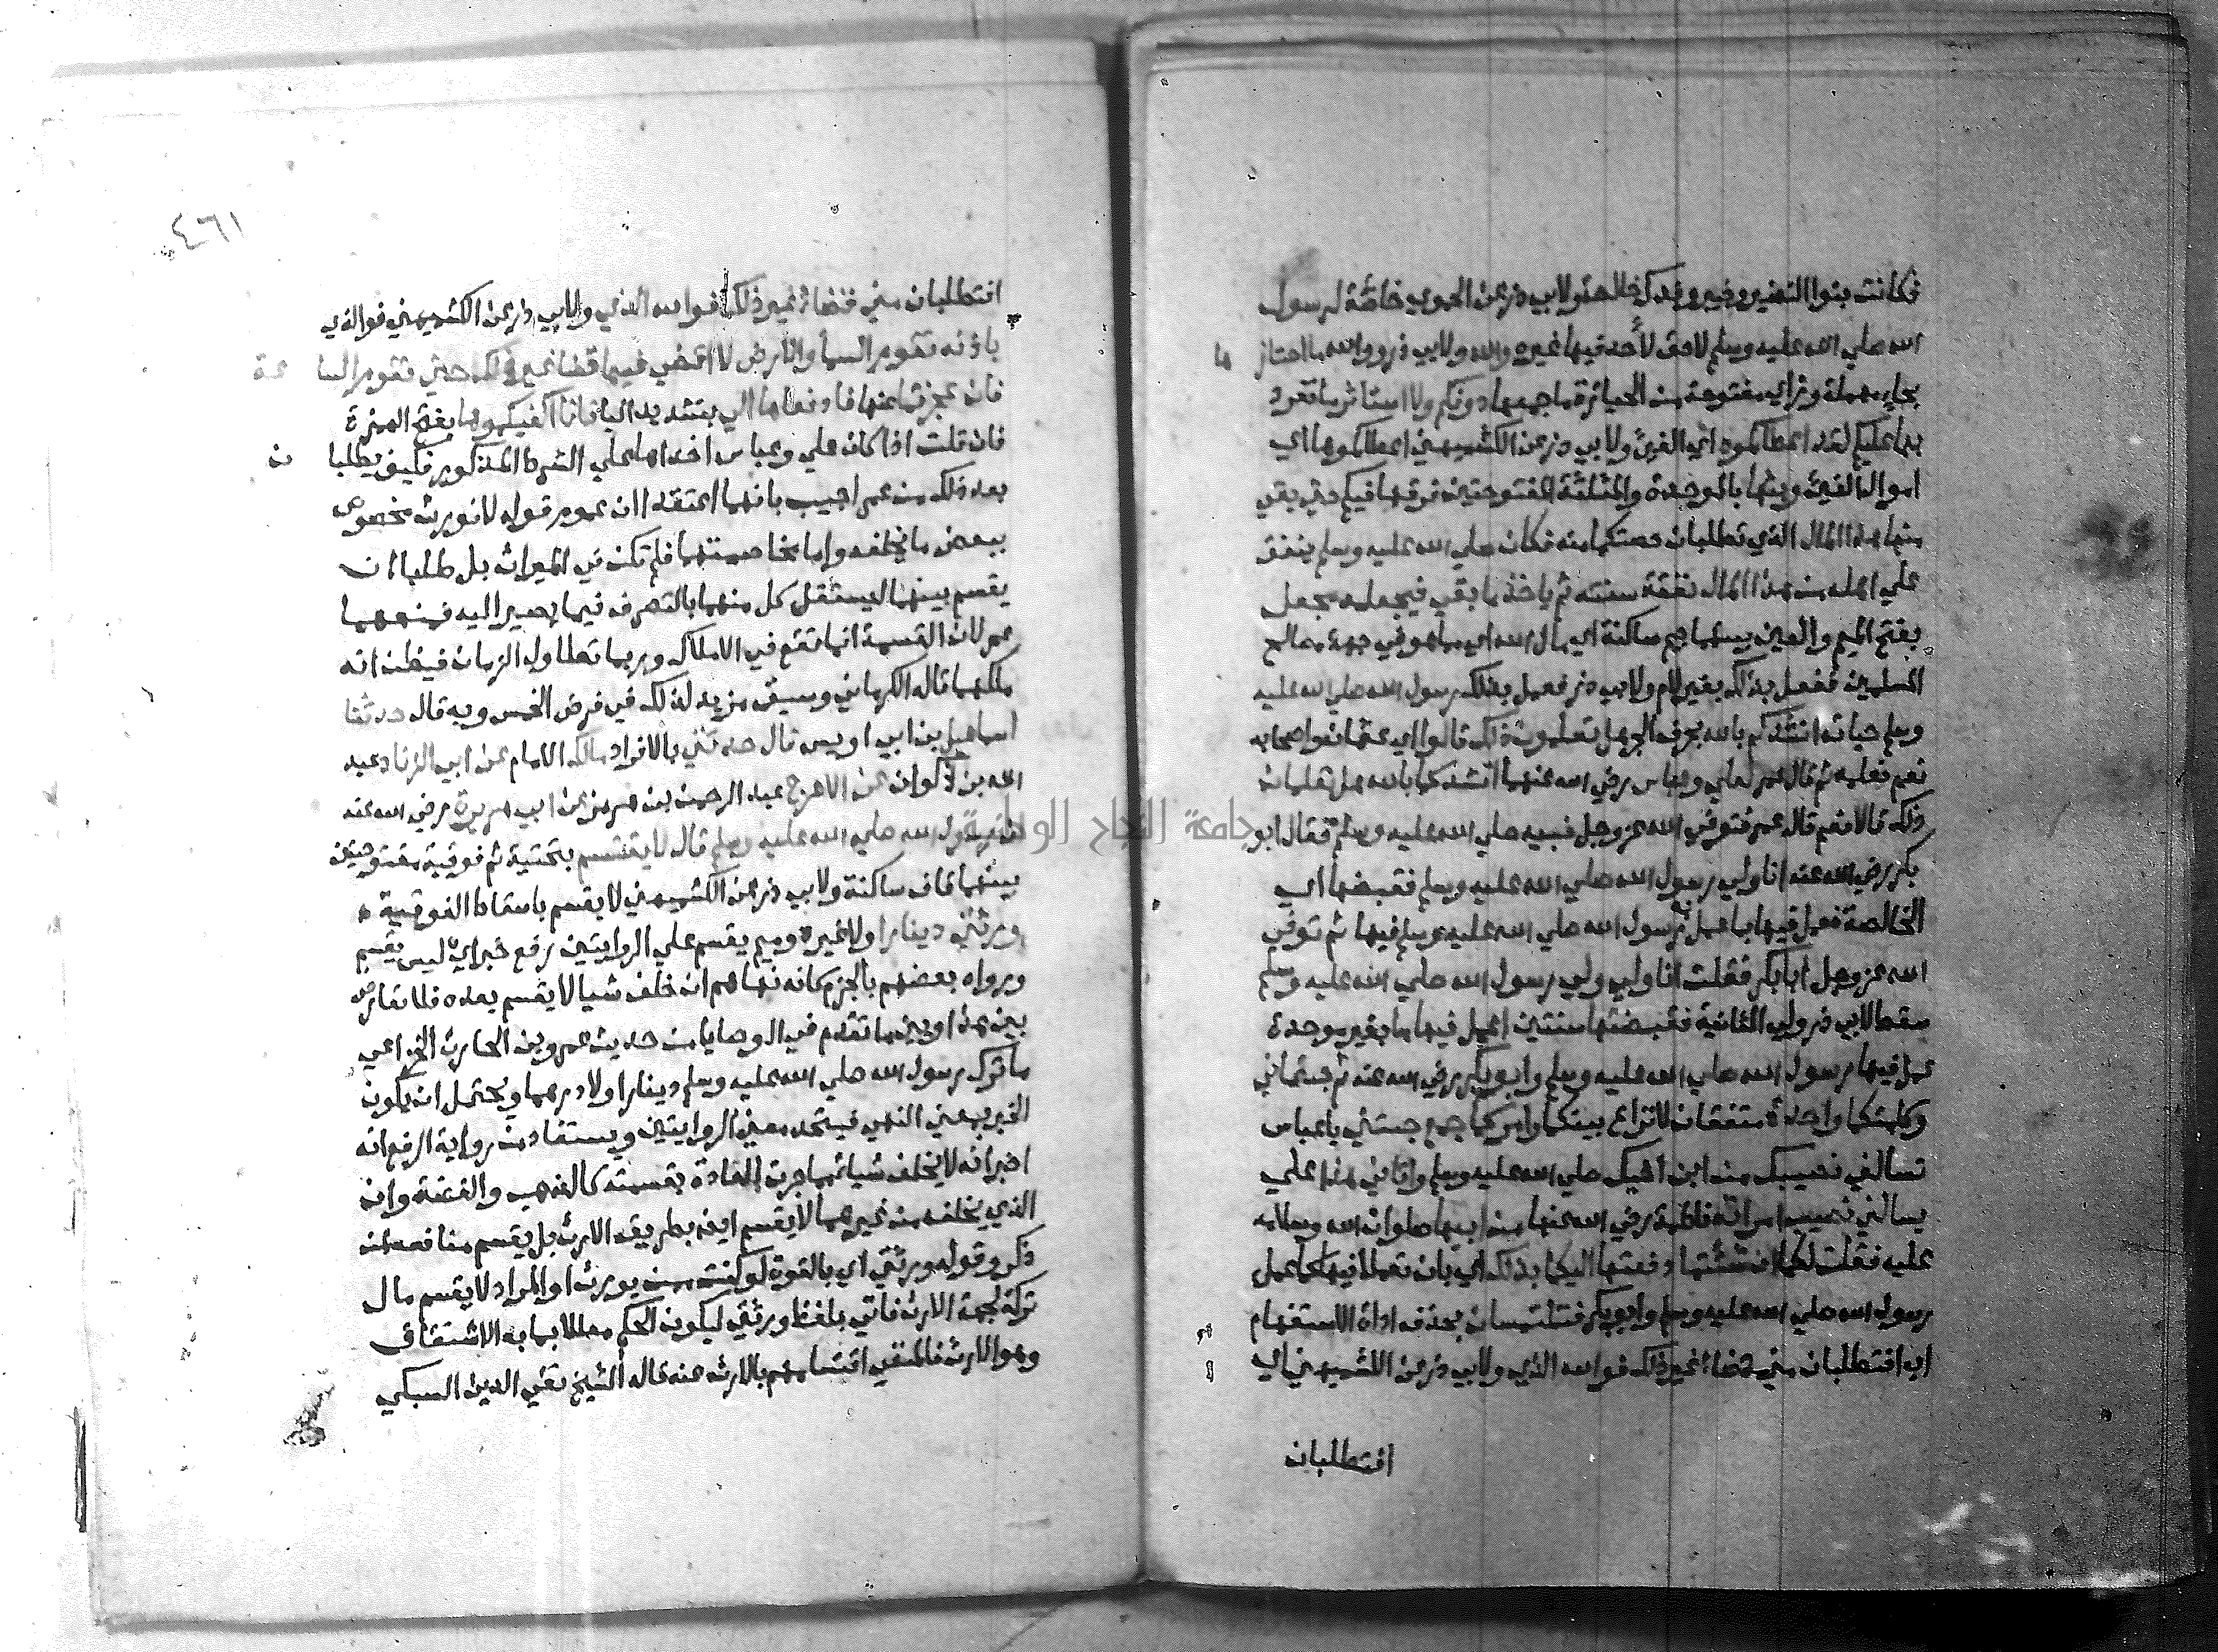 فكانت بنوا النضير وخيبر وفدك خالصة ولابي ذر عن الحموي خاصة لرسول
الله صلي الله عليه وسلم لاحق لأحد فيها غيره والله ولابي ذر ووالله ما احتاز ها
بحاء مهملة وزاي مفتوحة من الحيازة ما جمعها دونكم ولا استاثر ما تفرد
بها عليكم لقد اعطاكموه اي الفيئ ولابي ذر عن الكشميهني اعطاكموها اي
اموال الفيئ وبثها بالموحدة والمثلثة المفتوحتين فرقها فيكم حتي بقي
منها هذا المال الذي تطلبان حصتكما منه فكان صلي الله عليه وسلم ينفق
علي اهله من هذا المال نفقة سنته ثم ياخذ ما بقي فيجعله مجعل
بفتح الميم والعين بينهما جيم ساكنة اي مال الله اي مما هو في جهة مصالح
المسلمين ففعل بذلك بغير لام ولابي ذر فعمل بذلك رسول الله صلي الله عليه
وسلم حياته انشدكم بالله بحرف الجر هل تعلمون ذلك قالوا اي عثمان واصحابه
نعم نعلمه ثم قال عمر لعلي وعباس رضي الله عنهما انشدكما بالله هل تعلمان
ذلك قالا نعم قال عمر فتوفي الله عز وجل نبيه صلي الله عليه وسلم فقال ابو
بكر رضي الله عنه انا ولي رسول الله صلي الله عليه وسلم فقبضها اي
الخالصة فعمل فيها بما عمل به رسول الله صلي الله عليه وسلم فيها ثم توفي
الله عز وجل ابا بكر فقلت انا ولي ولي رسول الله صلي الله عليه وسلم
سقط لابي ذر ولي الثانية فقبضتها سنتين اعمل فيها ما بغير موحدة
عمل فيها رسول الله صلي الله عليه وسلم وابو بكر رضي الله عنه ثم جئتماني
وكلمتكما واحدة متفقان لا نزاع بينكما وامركما جميع جئتني يا عباس
تسالني نصيبك من ابن اخيك صلي الله عليه وسلم واتاني هذا علي
يسالني نصيب امراته فاطمة رضي الله عنها من ابيها صلوات الله وسلامه
عليه فقلت لكما ان شئتما دفعتها اليكما بذلك اي بان تعملا فيها كما عمل
رسول الله صلي الله عليه وسلم وابو بكر فتلتمسان بحذف اداة الاستفهام
اي افتطلبان مني قضاء غير ذلك فوالله الذي ولابي ذر عن الكشميهني اي
افتطلبان
٤٦١
افتطلبان مني قضاء غير ذلك فوالله الذي ولابي ذر عن الكشميهني فوالذي
باذنه تقوم السما والارض لا اقضي فيها قضا غير ذلك حتي تقوم الساعة
فان عجزتما عنها فادفعاها الي بتشديد اليا فانا اكفيكموها بفتح الهمزة
فان قلت اذا كان علي وعباس اخذاها علي الشرط المذكور فكيف يطلبان
بعد ذلك من عمر اجيب بانهما اعتقدا ان عموم قوله لا نورث مخصوص
ببعض ما يخلفه واما مخاصمتهما فلم تكن في الميراث بل طلبا ان
يقسم بينهما ليستقل كل منهما بالتصرف فيما يصير اليه فمنعهما
عمر لان القسمة انما تقع في الاملاك وربما تطاول الزمان فيظن انه
ملكهما قاله الكرماني وسبق مزيد لذلك في فرض الخمس وبه قال حدثنا
اسماعيل بن ابي اويس قال حدثني بالافراد مالك الامام عن ابي الزناد عبد
الله بن ذكوان عن الاعرج عبد الرحمن بن هرمز عن ابي هريرة رضي الله عنه
ان رسول الله صلي الله عليه وسلم قال لا يقتسم بتحتية ثم فوقية مفتوحتين
بينهما قاف ساكنة ولابي ذر عن الكشميهني لا يقسم باسقاط الفوقية
ورثتي دينارا ولا غيره وميم يقسم علي الروايتين رفع خبر اي ليس يقسم
ورواه بعضهم بالجزم كانه نهاهم ان خلف شيا لا يقسم بعده فلا تعارض
بين هذا وبين ما تقدم في الوصايا من حديث عمرو بن الحارث الخزاعي
ما ترك رسول الله صلي الله عليه وسلم دينارا ولا درهما ويحتمل ان يكون
الخبر بمعني النهي فيتحد معني الروايتين ويستفاد من رواية الرفع انه
اخبر انه لا يخلف شيا مما جرت العادة بقسمته كالذهب والفضة وان
الذي يخلفه من غيرهما لا يقسم ايضا بطريق الارث بل يقسم منافعه لمن
ذكر وقوله ورثتي اي بالقوة لو كنت ممن يورث او المراد لا يقسم مال
تركة لجهة الارث فاتي بلفظ ورثتي ليكون الحكم معللا بما به الاشتقاق
وهو الارث فالمنفي اقتسامهم بالارث عنه قاله الشيخ تقي الدين السبكي
جامعة النجاح الوطنية